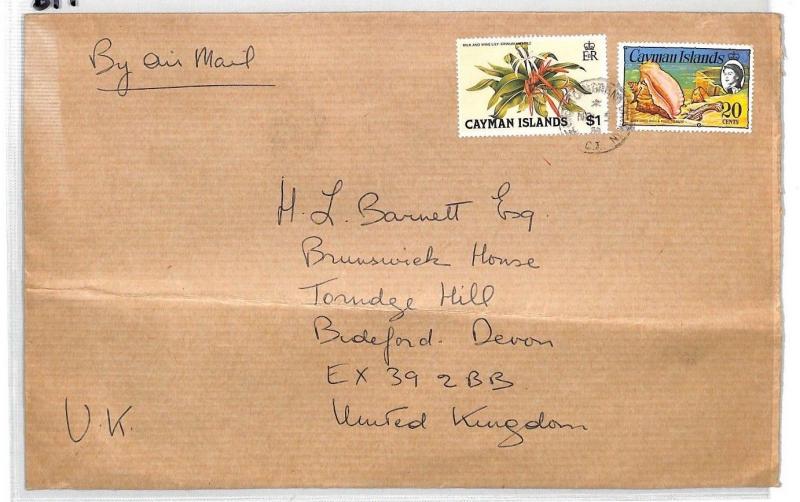 By air Mail
MILK AND WINE LILY
E R
CAYMAN ISLANDS $1
Cayman Islands
20
CENTS
H. L. Barnett Esq.
Brunswick House
Torridge Hill
Bideford. Devon
EX 39 2BB
United Kingdom
U.K.